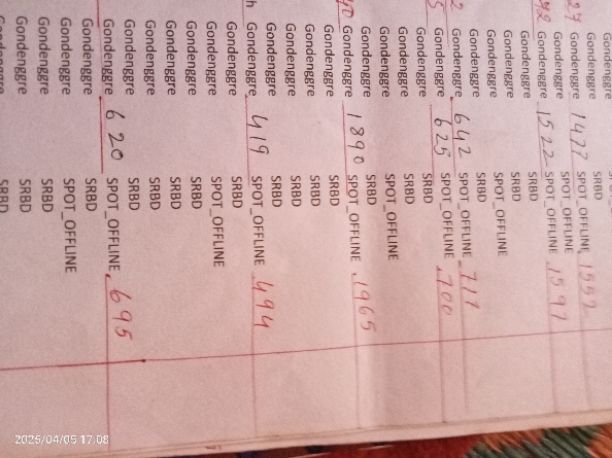 Gondenggre
Gondenggre SRBD
27 Gondenggre 1477 SPOT_OFFLINE 1552
Gondenggre SPOT_OFFLINE
92 Gondenggre 1522 SPOT_OFFLINE 1597
Gondenggre SRBD
Gondenggre SRBD
Gondenggre SPOT_OFFLINE
Gondenggre SRBD
2 Gondenggre 642 SPOT_OFFLINE 717
5 Gondenggre 625 SPOT_OFFLINE 700
Gondenggre SRBD
Gondenggre SRBD
Gondenggre SPOT_OFFLINE
Gondenggre SRBD
Gondenggre 1890 SPOT_OFFLINE 1965
Gondenggre SRBD
Gondenggre SRBD
Gondenggre SRBD
Gondenggre SRBD
h Gondenggre 419 SPOT_OFFLINE 494
Gondenggre SRBD
Gondenggre SPOT_OFFLINE
Gondenggre SRBD
Gondenggre SRBD
Gondenggre SRBD
Gondenggre SRBD
Gondenggre 620 SPOT_OFFLINE 695
Gondenggre SRBD
Gondenggre SPOT_OFFLINE
Gondenggre SRBD
Gondenggre SRBD
Gondenggre SRBD
2025/04/05 17:08